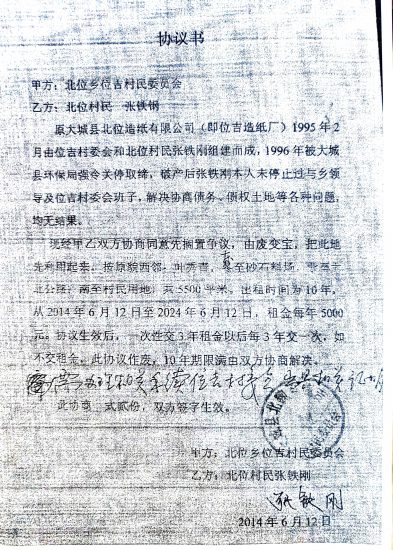 协议书
甲方：北位乡位吉村民委员会
乙方：北位村民 张铁钢
原大城县北位造纸有限公司（即位吉造纸厂）1995年2
月由位吉村委会和北位村民张铁刚组建而成，1996年被大城
县环保局强令关停取缔，破产后张铁刚本人未停止过与乡领
导及位吉村委会班子，解决协商债务、债权土地等各种问题，
均无结果。
现经甲乙双方协商同意先搁置争议，由废变宝，把此地
先利用起来，按原貌西邻 至砂石料场，
北公路，南至村民用地，共5500平米，出租时间为10年，
从2014年6月12日至2024年6月12日，租金每年5000
元。协议生效后，一次性交3年租金以后每3年交一次，如
不交租金，此协议作废，10年期限满由双方协商解决。
办理相关手续位吉村委会
此协商一式贰份，双方签字生效。
甲方：北位乡位吉村民委员会
乙方：北位村民张铁刚
张铁刚
2014年6月12日